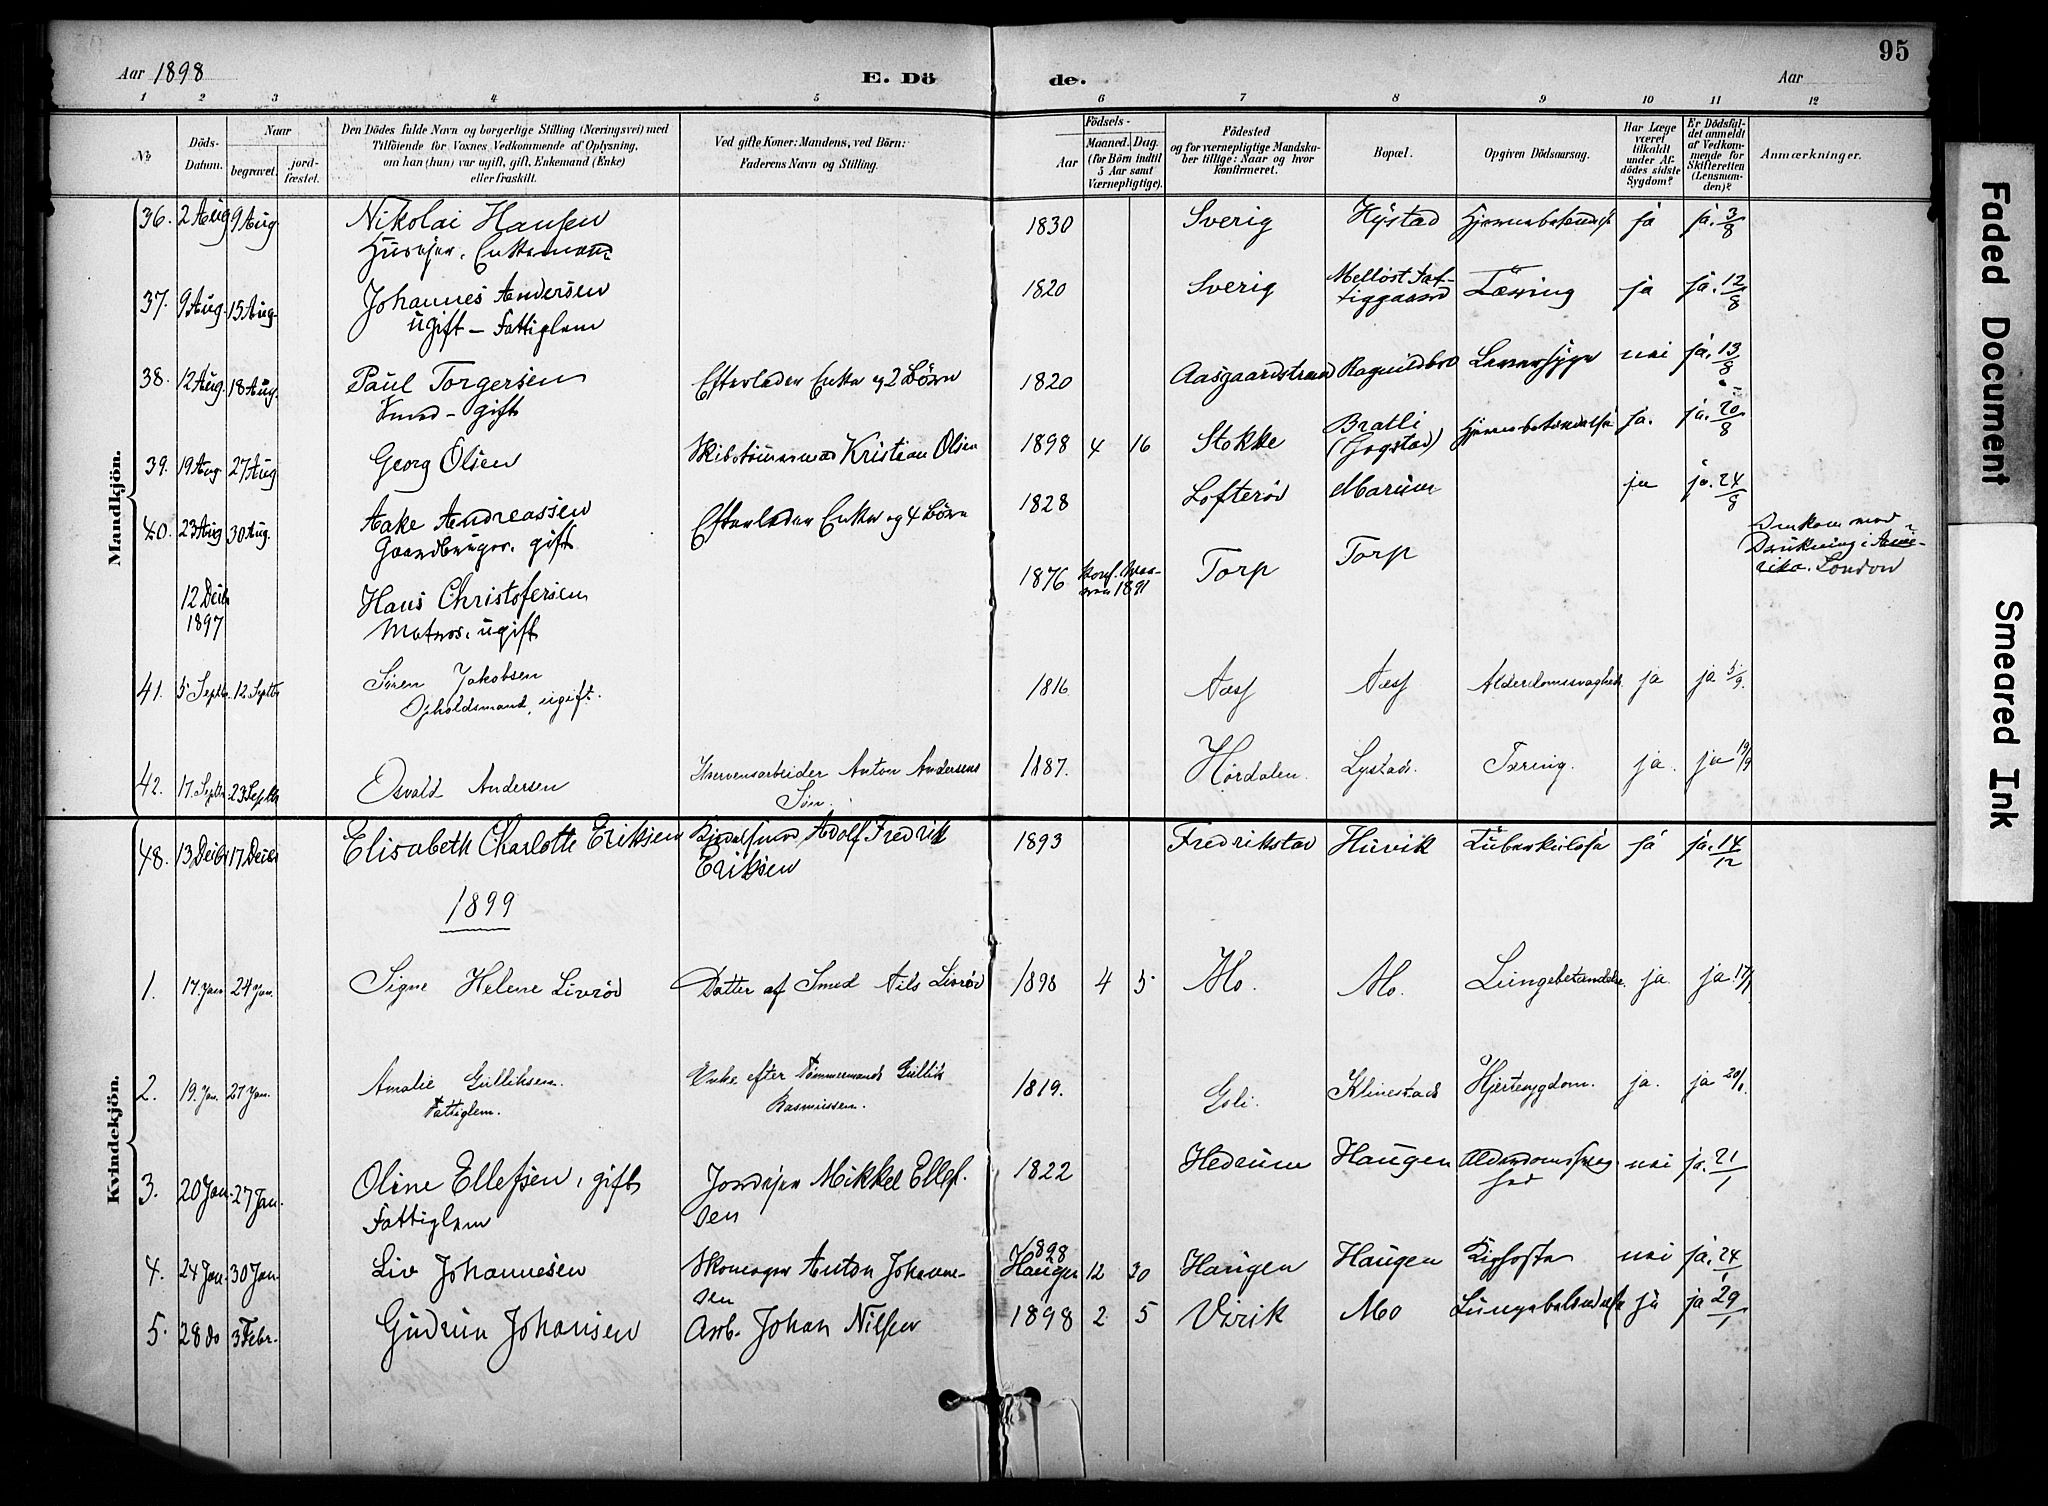 95
Aar 1898
E. Döde.
Aar
1 2 3 4 5 6 7 8 9 10 11 12
No.
Döds-Datum.
Naar
begravet.
jord-fæstet.
Den Dödes fulde Navn og borgerlige Stilling (Næringsvei) med
Tilföiende for Voxnes Vedkommende af Oplysning,
om han (hun) var ugift, gift, Enkemand (Enke)
eller fraskilt.
Ved gifte Koner: Mandens, ved Börn:
Faderens Navn og Stilling.
Födsels-
Aar
Maaned. Dag.
(for Börn indtil
5 Aar samt
Værnepligtige).
Födested
og for værnepligtige Mandska-
ber tillige: Naar og hvor
konfirmeret.
Bopæl.
Opgiven Dödsaarsag.
Har Læge
været
tilkaldt
under Af-
dödes sidste
Sygdom?
Er Dödsfal-
det anmeldt
af Vedkom-
mende for
Skifteretten
(Lensman-
den)?
Anmærkninger.
Mandkjön.
36. 2 Aug 9 Aug Nikolai Hansen 1830 Sverig Hystad ja ja. 3/8
Husejer. Enkemand
37. 9 Aug. 15 Aug. Johannes Andersen 1820 Sverig Mellöst Fat- Tæring ja ja. 12/8
ugift – Fattiglem tiggaard
38. 12 Aug. 18 Aug. Paul Torgersen Efterlader Enke og 2 Börn 1820 Aasgaardstrand Ragnildbro Leversyge nei ja. 13/8
Smed – gift
39. 19 Aug 27 Aug Georg Olsen Skibstömmermand Kristian Olsen 1898 4 16 Stokke Bratli Hjernebetændelse ja. ja. 20/8
(Gogstad)
40. 23 Aug 30 Aug. Aake Andreassen Efterlader Enke og 4 Börn 1828 Lofteröd Marum ja ja. 24/8
Gaardbruger. gift
12 Decbr 1897 Hans Christofersen 1876 Konf. 1891 Torp Torp Omkom ved Drukning i Ame-rika. London
Matros. ugift
41. 5 Septbr. 12 Septbr Sören Jakobsen 1816 Næs Næs Alderdomssvaghed ja ja 5/9.
Opholdsmand, ugift.
42. 17 Septbr 23 Septbr Osvald Andersen Hvervensarbeider Anton Andersens 1887. Hördalen. Lystad. Tæring. ja. ja 19/9
Sön.
Kvindekjön.
48. 13 Decbr 17 Decbr Elisabeth Charlotte Eriksen Adolf Fredrik 1893 Fredrikstad Huvik Tuberkulose ja ja. 14/12
Eriksen
1899
1. 17. Jan 24 Jan. Signe Helene Livröd Datter af Smed Nils Livröd 1898 4 5 Mo. Mo. Lungebetændelse. ja. ja. 17/1
2. 19. Jan. 27 Jan. Amalie Gulliksen. Enke efter Tömmermand Gullik 1819. Gsli. Klinestad Hjertesygdom. ja. ja 20/1.
Fattiglem. Rasmussen.
3. 20 Jan. 27 Jan. Oline Ellefsen, gift Jordejer Mikkel Ellef- 1822 Hedrum Haugen Alderdomssvag- nei ja. 21/1
Fattiglem sen hed
4. 24 Jan 30 Jan Liv Johannesen Skomager Anton Johanne- 1898 Haugen 12 30 Haugen Haugen Kighoste nei ja. 24/1
sen
5. 28 do 3 Febr. Gudrun Johansen Arb. Johan Nilsen 1898 2 5 Virik Mo Lungebetændelse ja ja 29/1
Faded Document
Smeared Ink